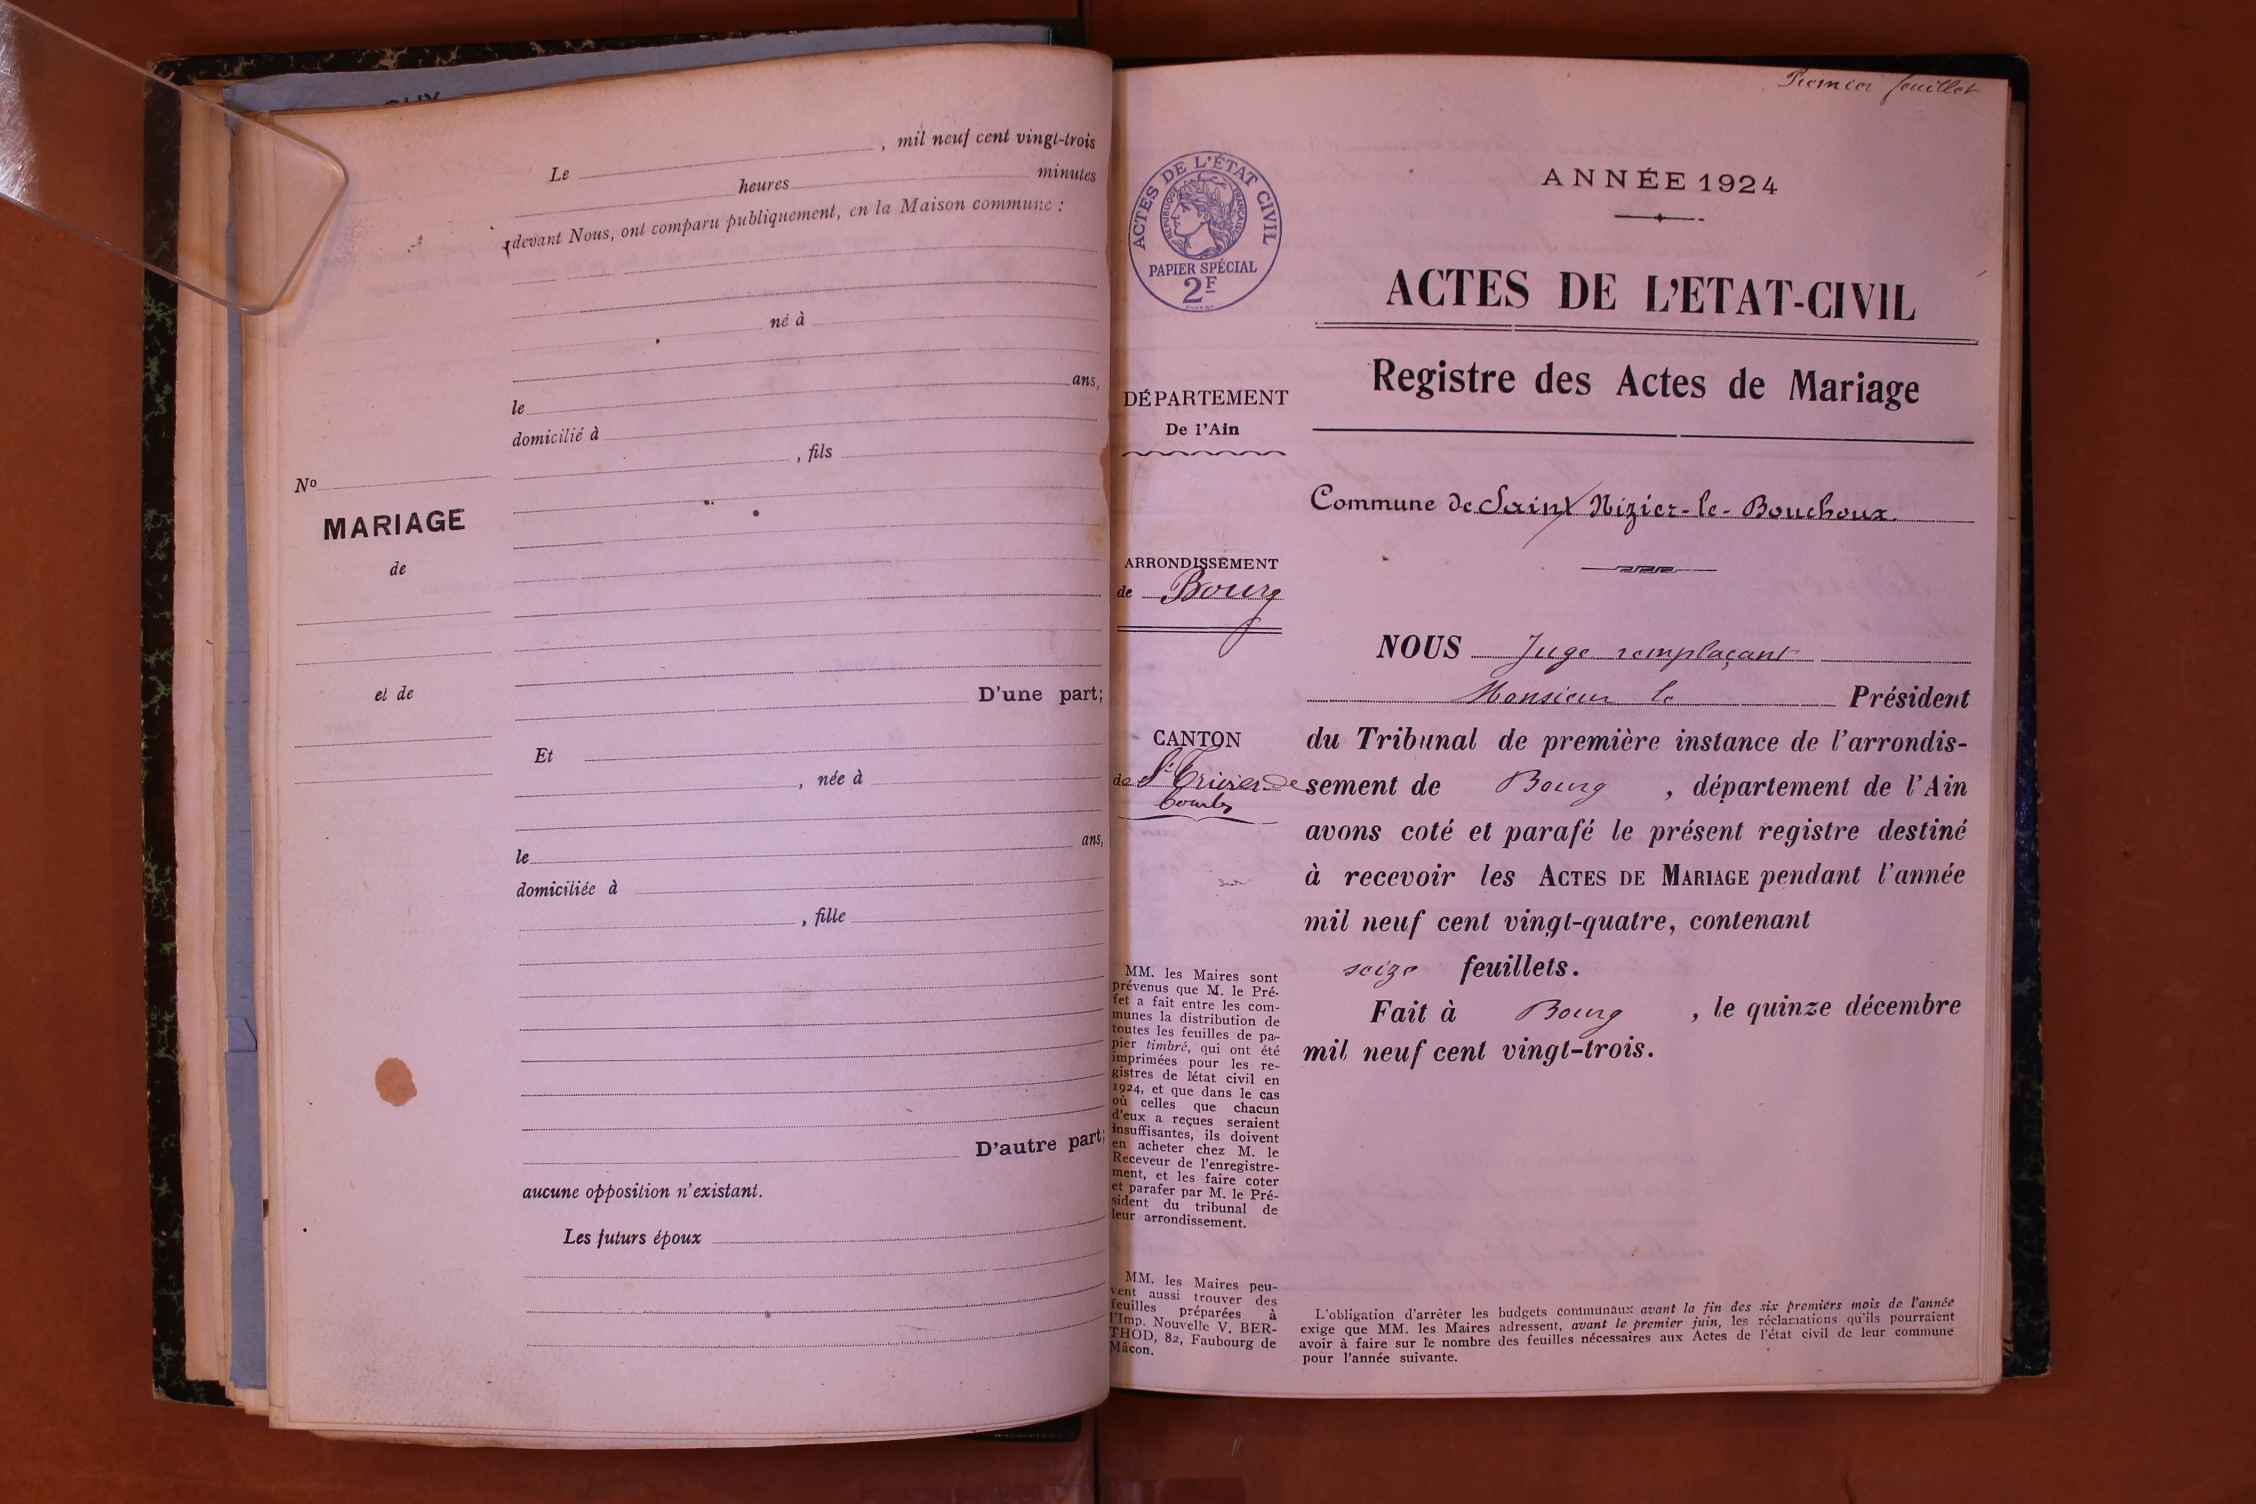 Le , mil neuf cent vingt-trois
heures minutes
devant Nous, ont comparu publiquement, en la Maison commune :
né à
le ans,
domicilié à
, fils
No
MARIAGE
de
et de
D'une part;
Et
, née à
le ans,
domiciliée à
, fille
D'autre part;
aucune opposition n'existant.
Les futurs époux
Premier feuillet
ACTES DE L'ÉTAT CIVIL
RÉPUBLIQUE FRANÇAISE
PAPIER SPÉCIAL
2F
ANNÉE 1924
ACTES DE L'ETAT-CIVIL
Registre des Actes de Mariage
DÉPARTEMENT
De l'Ain
Commune de Saint Nizier-le-Bouchoux
ARRONDISSEMENT
de Bourg
CANTON
de St Trivier de
Courtes
NOUS Juge remplaçant
Monsieur le Président
du Tribunal de première instance de l'arrondis-
sement de Bourg , département de l'Ain
avons coté et parafé le présent registre destiné
à recevoir les ACTES DE MARIAGE pendant l'année
mil neuf cent vingt-quatre, contenant
seize feuillets.
Fait à Bourg , le quinze décembre
mil neuf cent vingt-trois.
MM. les Maires sont
prévenus que M. le Pré-
fet a fait entre les com-
munes la distribution de
toutes les feuilles de pa-
pier timbré, qui ont été
imprimées pour les re-
gistres de l'état civil en
1924, et que dans le cas
où celles que chacun
d'eux a reçues seraient
insuffisantes, ils doivent
en acheter chez M. le
Receveur de l'enregistre-
ment, et les faire coter
et parafer par M. le Pré-
sident du tribunal de
leur arrondissement.
MM. les Maires peu-
vent aussi trouver des
feuilles préparées à
l'Imp. Nouvelle V. BER-
THOD, 82, Faubourg de
Mâcon.
L'obligation d'arrêter les budgets communaux avant la fin des six premiers mois de l'année
exige que MM. les Maires adressent, avant le premier juin, les réclamations qu'ils pourraient
avoir à faire sur le nombre des feuilles nécessaires aux Actes de l'état civil de leur commune
pour l'année suivante.